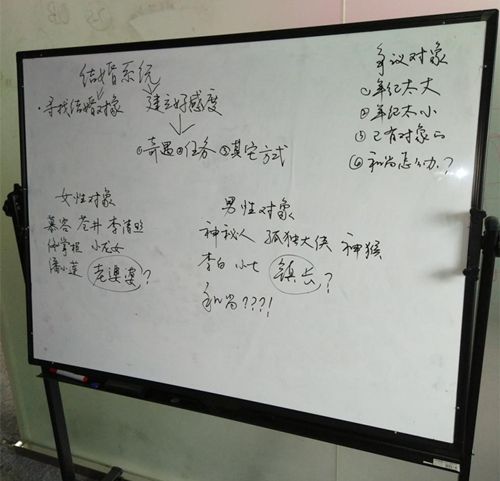 结婚系统
·寻找结婚对象 建立好感度
①奇遇②任务③其它方式
争议对象
①年纪太大
②年纪太小
③已有对象的
④和尚怎么办？
女性对象
慕容 苍井 李清照
佟掌柜 小龙女
潘小莲 老婆婆？
男性对象
神秘人 孤独大侠 神猴
李白 小七 镇长？
和尚？？？！